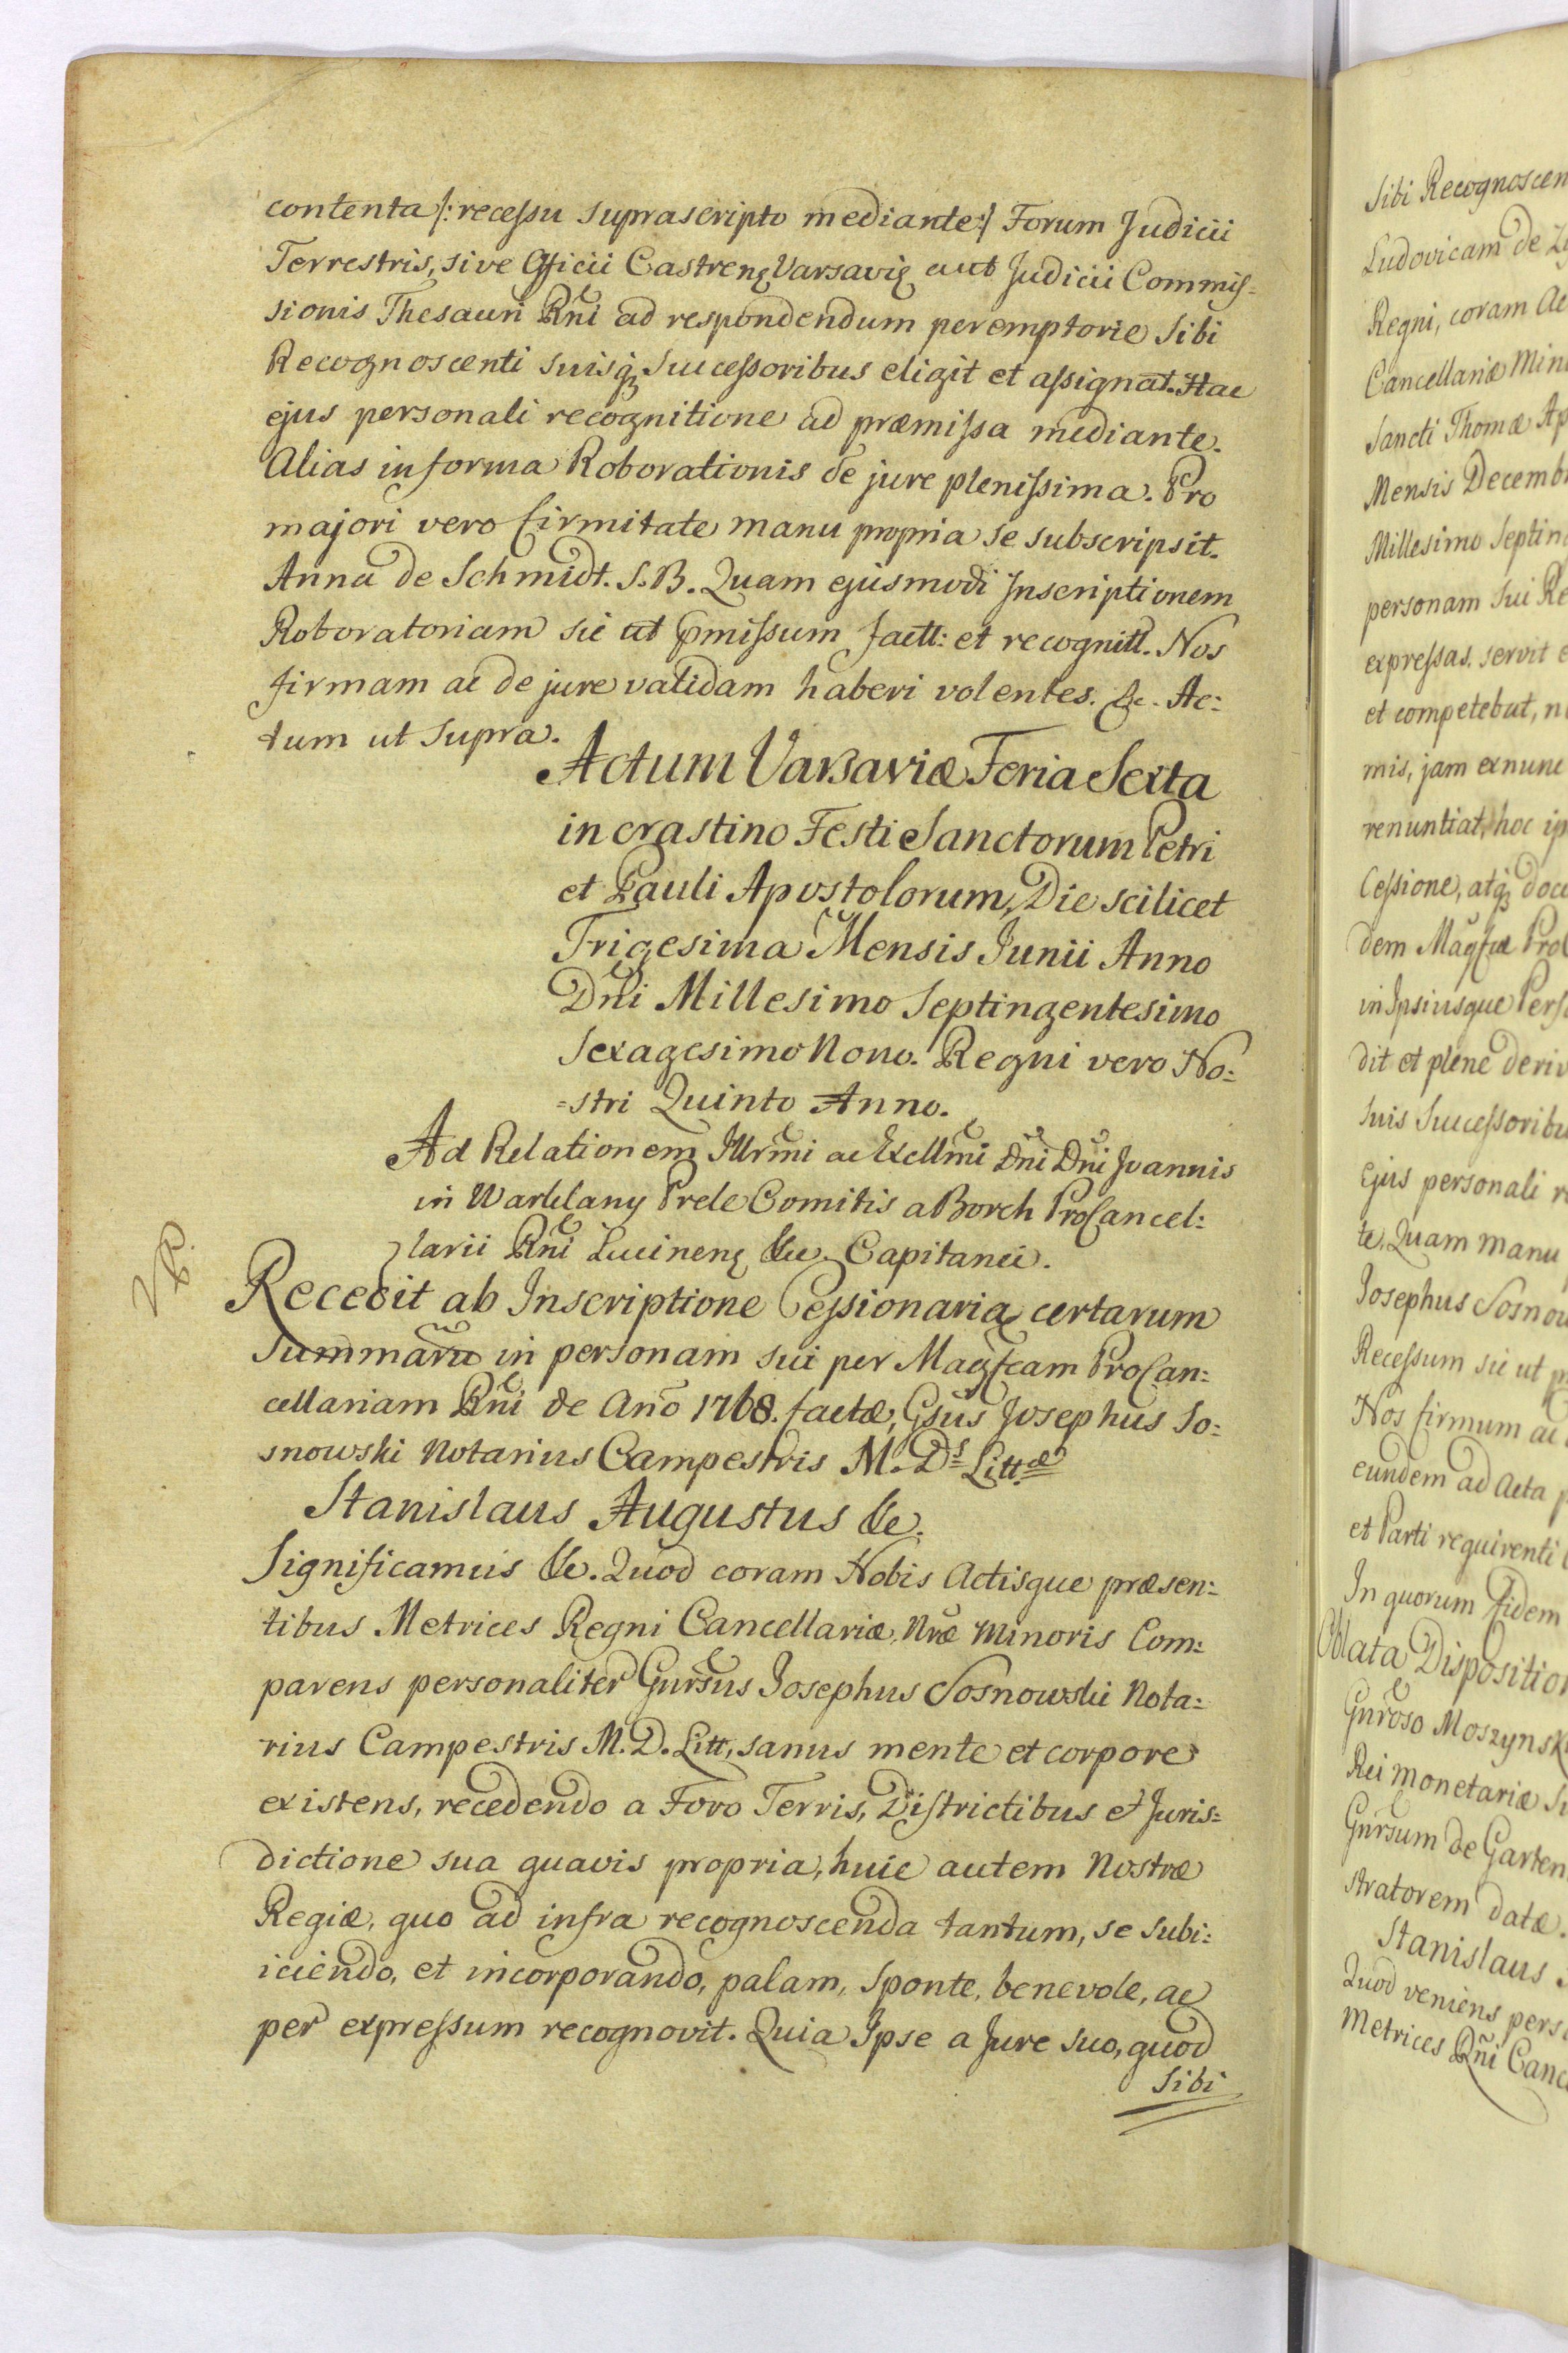 contenta /: recessu suprascripto mediante :/ Forum Judicii
Terrestris, sive Officii Castrenę Varsavię aut Judicii Commis-
sionis Thesauri Rñi ad respondendum peremptorie sibi
Recognoscenti suisq₃ Successoribus eligit et assignat. Hac
ejus personali recognitione ad præmissa mediante.
Alias in forma Roborationis de jure plenissima. Pro
majori vero firmitate manu propria se subscripsit.
Anna de Schmidt. S. B. Quam ejusmodi Inscriptionem
Roboratoriam sic ut pmissum factt: et recognitt. Nos
firmam ac de jure validam haberi volentes. &c. Ac:
tum ut supra.
Actum Varsaviæ Feria Sexta
in crastino Festi Sanctorum Petri
et Pauli Apostolorum, Die scilicet
Trigesima Mensis Junii Anno
Dñi Millesimo Septingentesimo
Sexagesimo Nono. Regni vero No:
=stri Quinto Anno.
Ad Relationem Illrmi ac Excllmi Dñi Dñi Joannis
in Warklany Prele Comitis a Borch ProCancel:
larii Rñi Lucinenę &c. Capitanei.
VP.
Recedit ab Inscriptione Cessionaria certarum
Summarũ in personam sui per Magfcam ProCan:
cellariam Rñi de Año 1768. factæ, Gsus Josephus So:
snowski Notarius Campestris M. Ds Littæ
Stanislaus Augustus &c.
Significamus &c. Quod coram Nobis Actisque præsen:
tibus Metrices Regni Cancellariæ Nræ Minoris Com:
parens personaliter Gnrsus Josephus Sosnowski Nota:
rius Campestris M. D. Litt, sanus mente et corpore
existens, recedendo a Foro Terris, Districtibus et Juris:
dictione sua quavis propria, huic autem Nostræ
Regiæ, quo ad infra recognoscenda tantum, se subi:
iciendo, et incorporando, palam, sponte, benevole, ac
per expressum recognovit. Quia Ipse a Jure suo, quod
sibi
sibi Recognoscen
Ludovicam de
Regni, coram Ac
Cancellariæ Min
Sancti Thomæ Ap
Mensis Decemb
Millesimo Septin
personam sui Re
expressas. servit e
et competebat, n
mis, jam ex nunc
renuntiat, hoc ip
Cessione, atq₃ doc
dem Magfcæ ProC
in Ipsiusque Pers
dit et plene deriv
suis Successoribu
ejus personali r
te. Quam manu
Josephus Sosnow
Recessum sic ut p
Nos firmum ac
eundem ad Acta p
et Parti requirenti
In quorum fidem
Oblata Disposition
Gnroso Moszynsk
Rei Monetariæ S
Gnrsum de Garten
stratorem datæ.
Stanislaus
Quod veniens pers
Metrices Rñi Canc